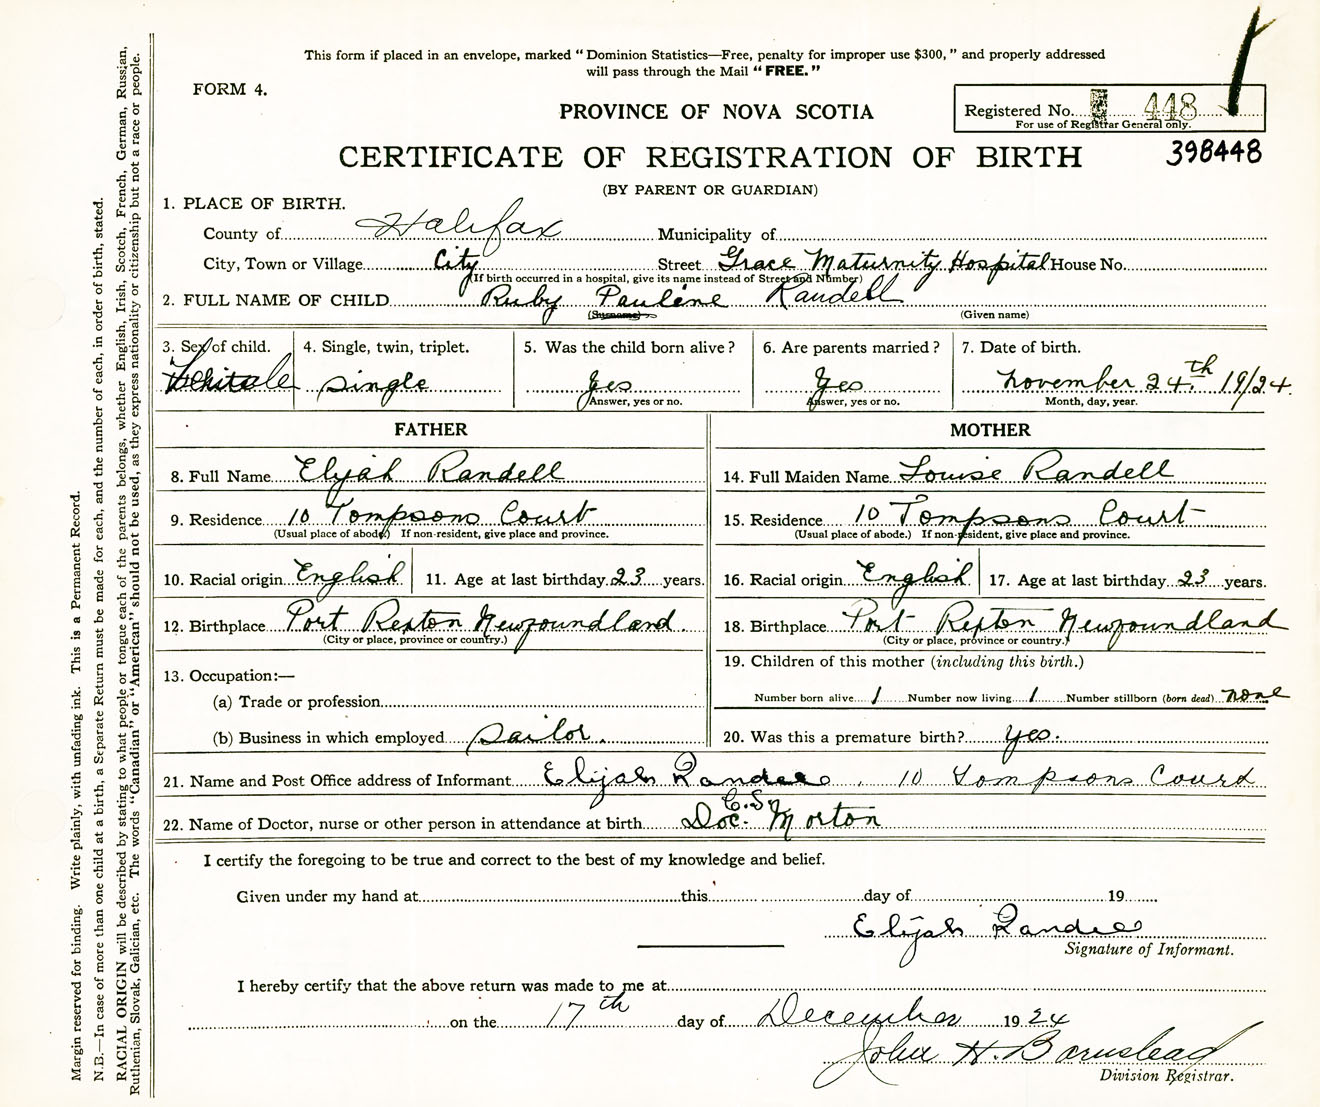 This form if placed in an envelope, marked "Dominion Statistics—Free, penalty for improper use $300," and properly addressed
will pass through the Mail "FREE."
FORM 4.
PROVINCE OF NOVA SCOTIA
Registered No. 448
For use of Registrar General only.
CERTIFICATE OF REGISTRATION OF BIRTH
398448
(BY PARENT OR GUARDIAN)
1. PLACE OF BIRTH.
County of Halifax Municipality of
City, Town or Village City Street Grace Maturnity Hospital House No.
(If birth occurred in a hospital, give its name instead of Street and Number)
2. FULL NAME OF CHILD Ruby Paulene Randell
(Surname) (Given name)
3. Sex of child. 4. Single, twin, triplet. 5. Was the child born alive? 6. Are parents married? 7. Date of birth.
single Yes Yes November 24th 19/24.
Answer, yes or no. Answer, yes or no. Month, day, year.
FATHER MOTHER
8. Full Name Elijah Randell 14. Full Maiden Name Louise Randell
9. Residence 10 Tompsons Court 15. Residence 10 Tompsons Court
(Usual place of abode.) If non-resident, give place and province. (Usual place of abode.) If non-resident, give place and province.
10. Racial origin English 11. Age at last birthday 23 years. 16. Racial origin English 17. Age at last birthday 23 years.
12. Birthplace Port Rexton Newfoundland. 18. Birthplace Port Rexton Newfoundland
(City or place, province or country.) (City or place, province or country.)
19. Children of this mother (including this birth.)
13. Occupation:—
(a) Trade or profession Number born alive 1 Number now living 1 Number stillborn (born dead) none
(b) Business in which employed sailor. 20. Was this a premature birth? yes.
21. Name and Post Office address of Informant Elijah Randell, 10 Tompsons Court
22. Name of Doctor, nurse or other person in attendance at birth Doc. C.S. Morton
I certify the foregoing to be true and correct to the best of my knowledge and belief.
Given under my hand at this day of 19
Elijah Randell
Signature of Informant.
I hereby certify that the above return was made to me at
on the 17th day of December 19 24
John H. Barnstead
Division Registrar.
Margin reserved for binding. Write plainly, with unfading ink. This is a Permanent Record.
N.B.—In case of more than one child at a birth, a Separate Return must be made for each, and the number of each, in order of birth, stated.
RACIAL ORIGIN will be described by stating to what people or tongue each of the parents belongs, whether English, Irish, Scotch, French, German, Russian,
Ruthenian, Slovak, Galician, etc. The words "Canadian" or "American" should not be used, as they express nationality or citizenship but not a race or people.